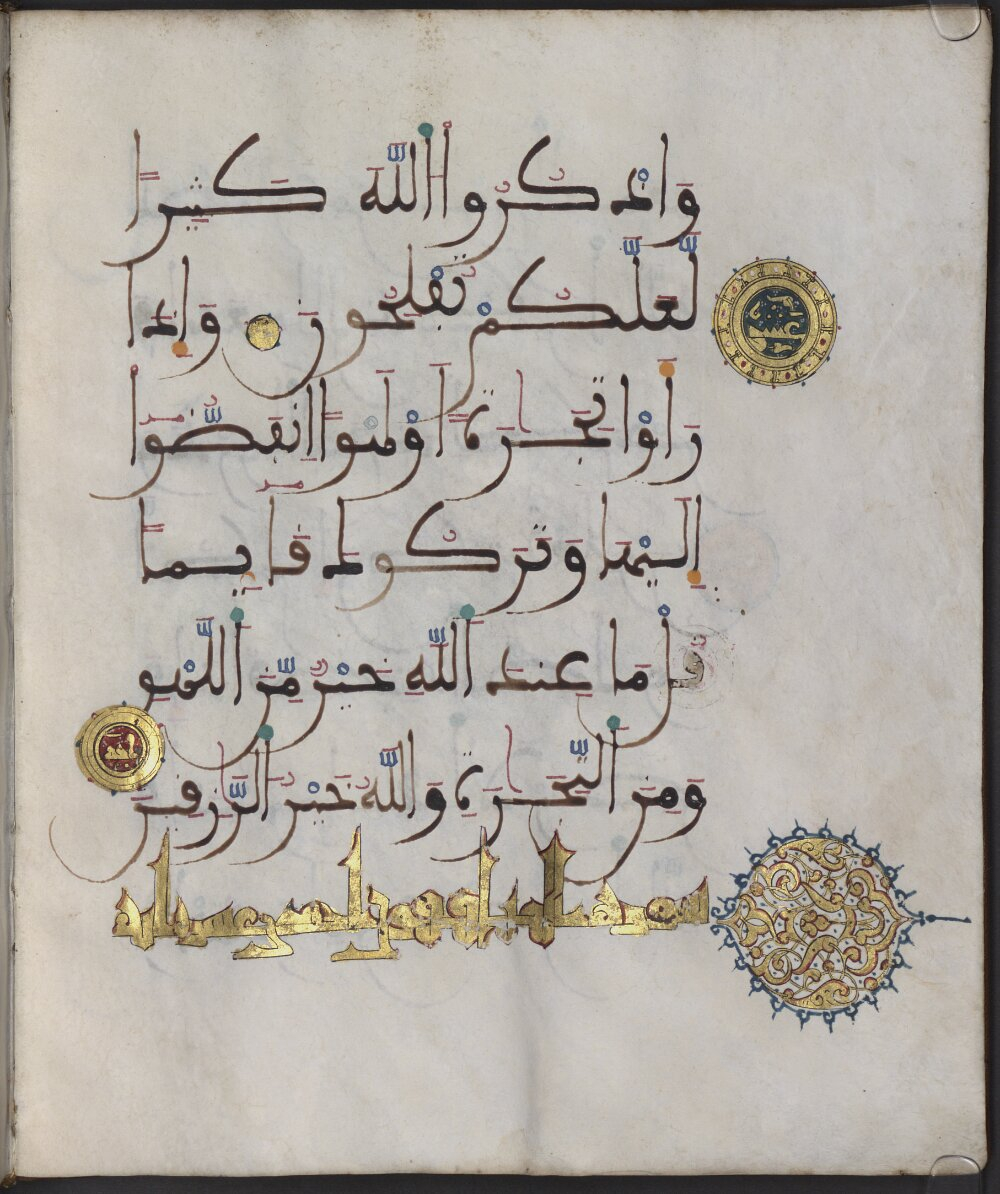 وَاذْكُرُوا اللَّهَ كَثِيرًا
لَّعَلَّكُمْ تُفْلِحُونَ وَإِذَا
رَأَوْا تِجَٰرَةً أَوْ لَهْوًا انفَضُّوا
إِلَيْهَا وَتَرَكُوكَ قَائِمًا
قُلْ مَا عِندَ اللَّهِ خَيْرٌ مِّنَ اللَّهْوِ
وَمِنَ التِّجَٰرَةِ وَاللَّهُ خَيْرُ الرَّٰزِقِينَ
سورة المنافقين احدى عشرة اية